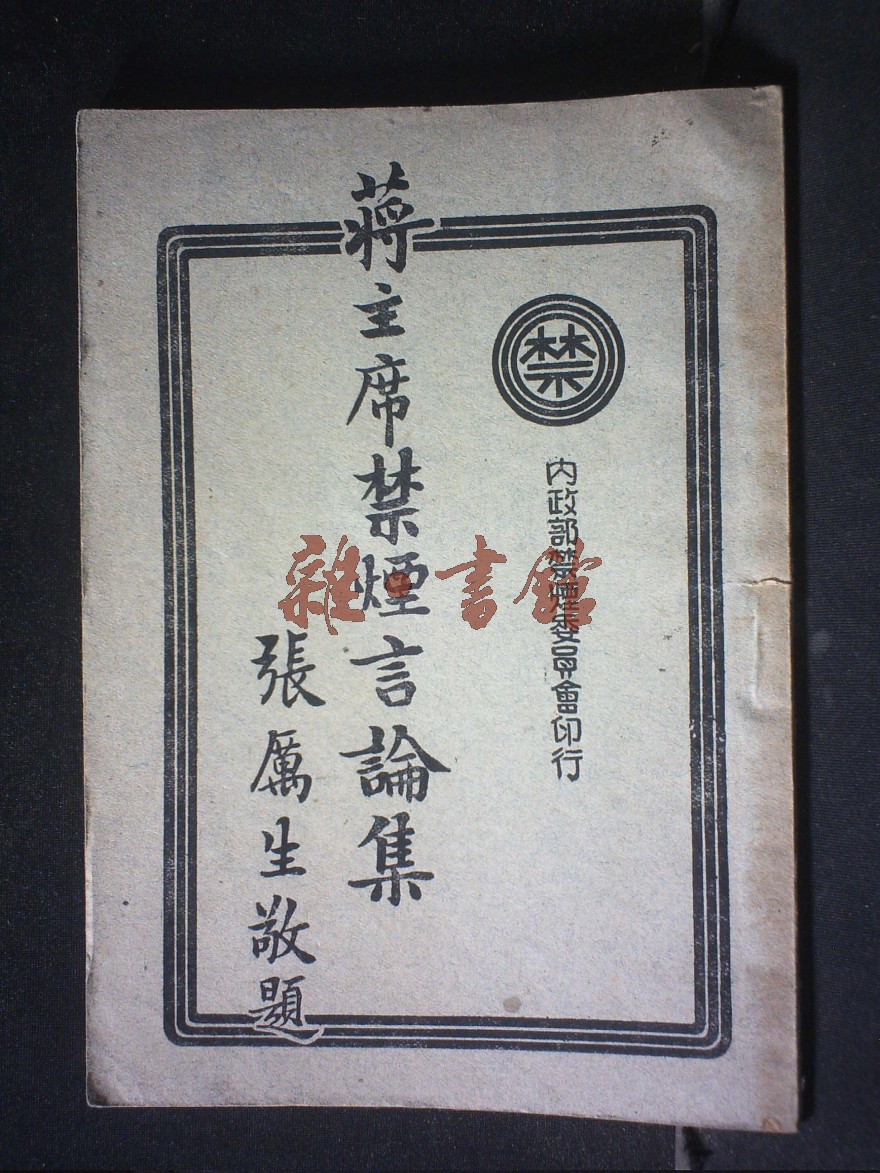 禁
內政部禁煙委員會印行
蔣主席禁煙言論集
張厲生敬題
雜·書館